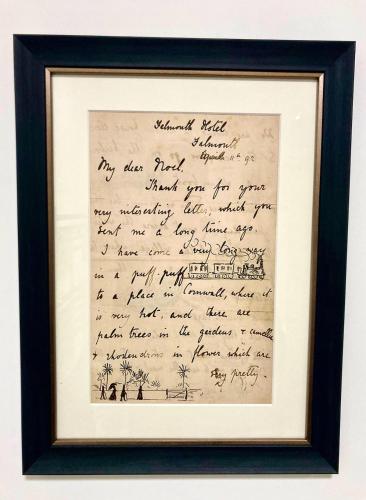 Falmouth Hotel
Falmouth
April 11th 92
My dear Noel.
Thank you for your
very interesting letter, which you
sent me a long time ago.
I have come a very long way
in a puff-puff
to a place in Cornwall, where it
is very hot, and there are
palm trees in the gardens & camellias
& rhodendrons in flower which are
very pretty.